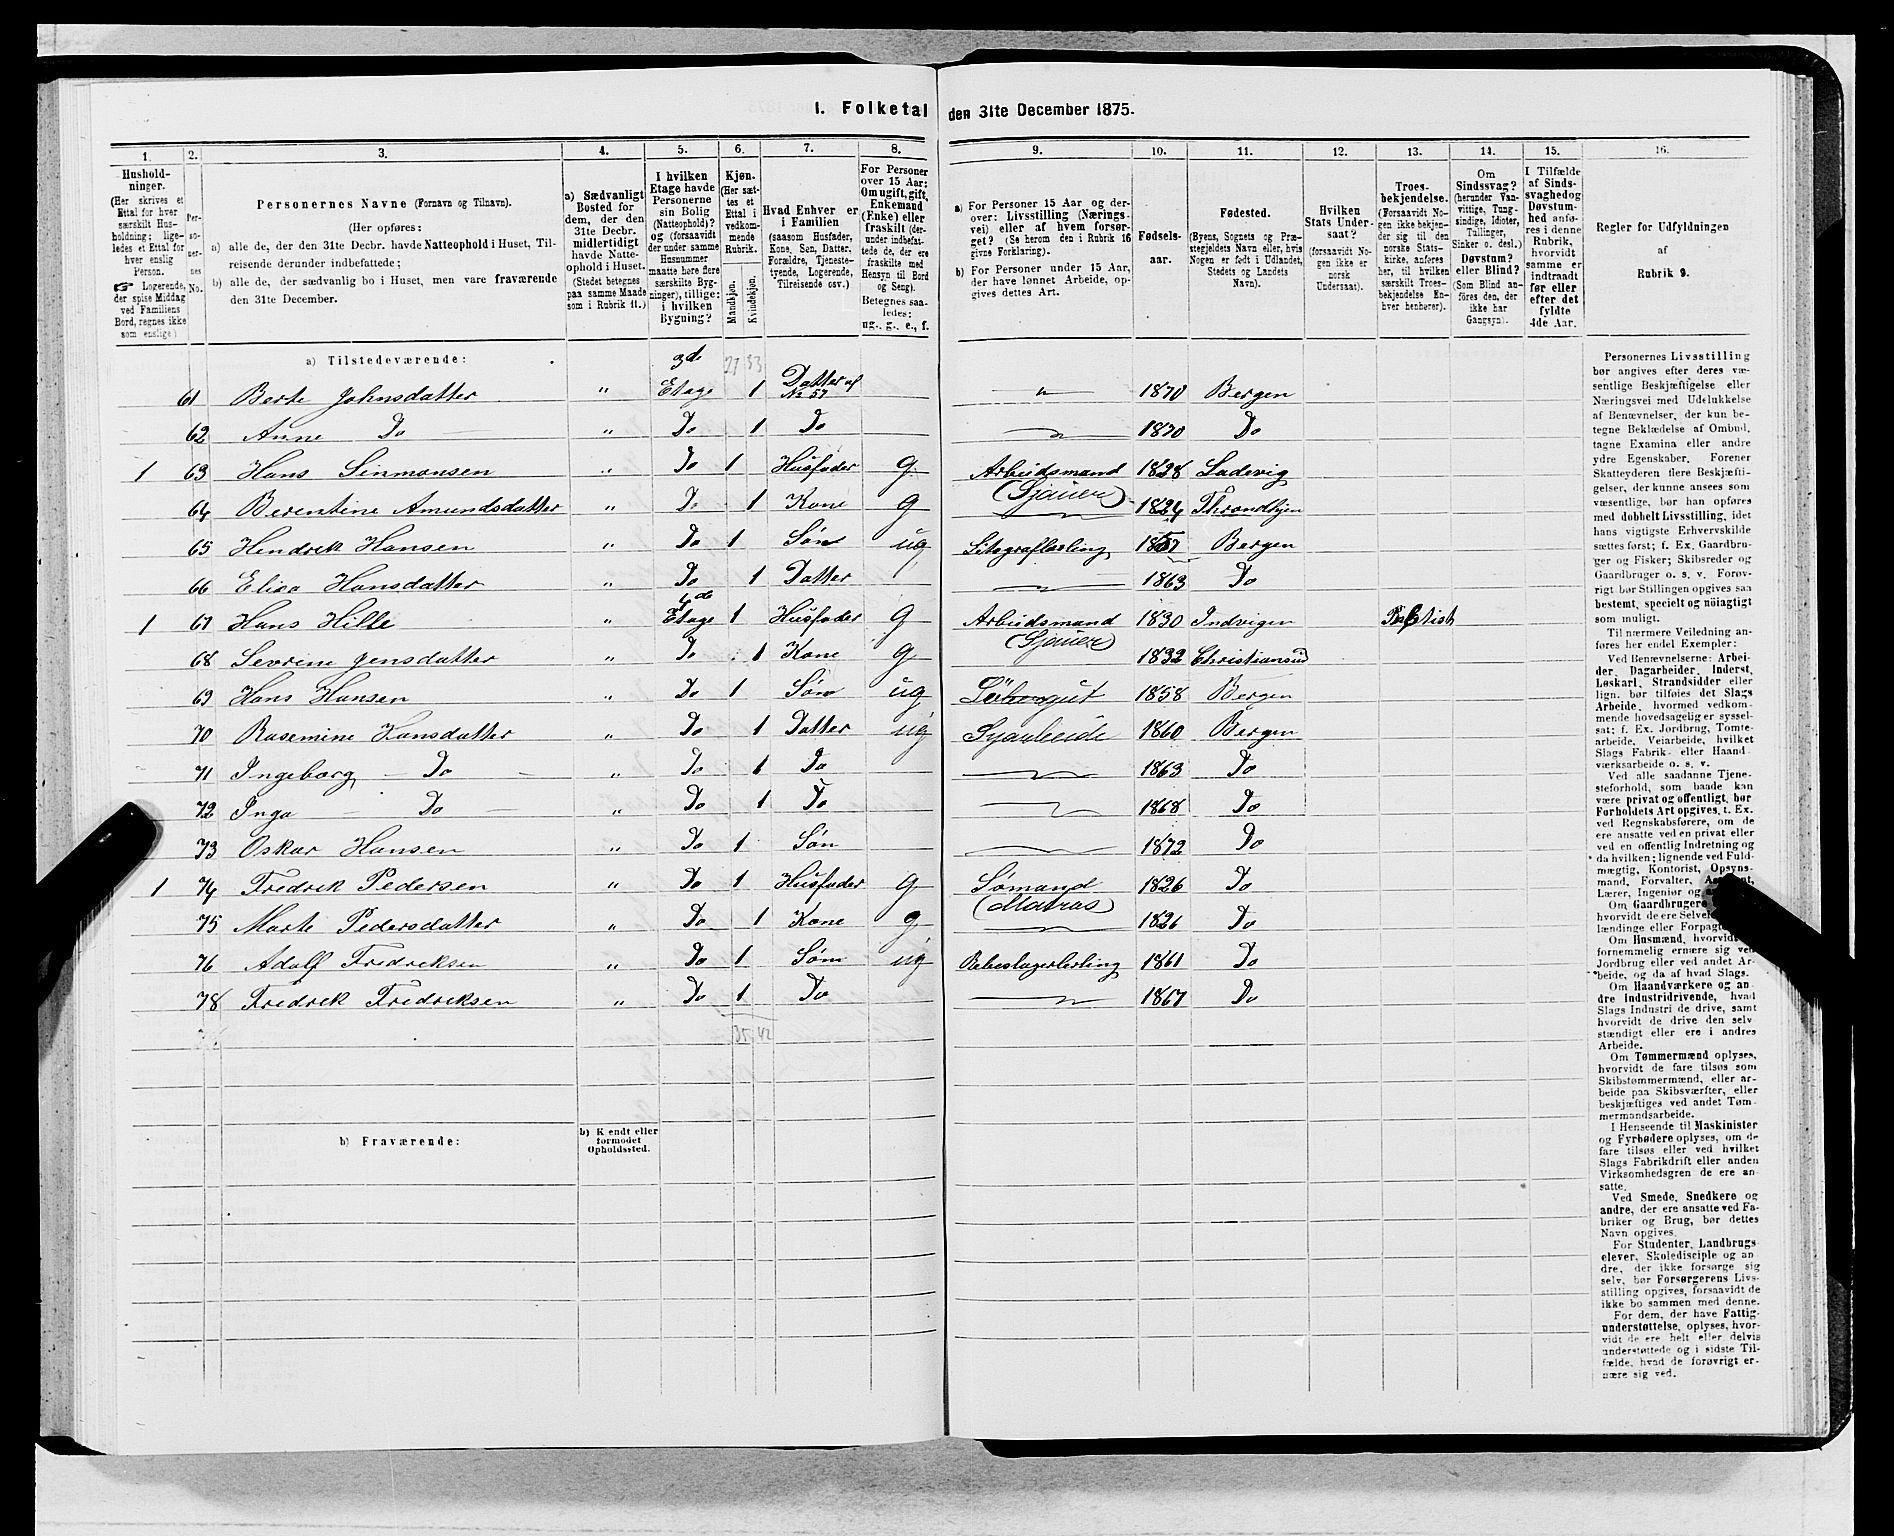 1. Folketal den 31te December 1875.
1. 2. 3. 4. 5. 6. 7. 8. 9. 10. 11. 12. 13. 14. 15. 16.
Hushold-
ninger.
(Her skrives et
Ettal for hver
særskilt Hus-
holdning; lige-
ledes et Ettal for
hver enslig
Person.
☞ Logerende,
der spise Middag
ved Familiens
Bord, regnes ikke
som enslige)
Per-
so-
ner-
nes
No.
Personernes Navne (Fornavn og Tilnavn).
(Her opføres:
a) alle de, der den 31te Decbr. havde Natteophold i Huset, Til-
reisende derunder indbefattede;
b) alle de, der sædvanlig bo i Huset, men vare fraværende
den 31te December.
a) Sædvanligt
Bosted for
dem, der den
31te Decbr.
midlertidigt
havde Natte-
ophold i Huset.
(Stedet betegnes
paa samme Maade
som i Rubrik 11.)
I hvilken
Etage havde
Personerne
sin Bolig
(Natteophold?
og (forsaavidt
der under samme
Husnummer
maatte høre flere
særskilte Byg-
ninger), tillige:
i hvilken
Bygning?
Kjøn.
(Her sæt-
tes et
Ettal i
vedkom-
mende
Rubrik.
Mandkjøn.
Kvindekjøn.
Hvad Enhver er
i Familien
(saasom Husfader,
Kone, Søn, Datter.
Forældre, Tjeneste-
tyende, Logerende,
Tilreisende osv.)
For Personer
over 15 Aar:
Om ugift, gift,
Enkemand
(Enke) eller
fraskilt (der-
under indbefat-
tede de, der ere
fraskilte med
Hensyn til Bord
og Seng).
Betegnes saa-
ledes:
ug., g., e., f.
a) For Personer 15 Aar og der-
over: Livsstilling (Nærings-
vei) eller af hvem forsør-
get? (Se herom den i Rubrik 16
givne Forklaring).
b) For Personer under 15 Aar,
der have lønnet Arbeide, op-
gives dettes Art.
Fødsels-
aar.
Fødested.
(Byens, Sognets og Præ-
stegjeldets Navn eller, hvis
Nogen er født i Udlandet,
Stedets og Landets
Navn).
Hvilken
Stats Under-
saat?
(forsaavidt No-
gen ikke er
norsk
Undersaat).
Troes-
bekjendelse.
(Forsaavidt No-
gen ikke bekjen-
der sig til den
norske Stats-
kirke, anføres
her, til hvilken
særskilt Troes-
bekjendelse En-
hver henhører).
Om
Sindssvag?
(herunder Van-
vittige, Tung-
sindige, Idioter,
Tullinger,
Sinker o. desl.)
Døvstum?
eller Blind?
(Som Blind an-
føres den, der
ikke har
Gangsyn).
I Tilfælde
af Sinds-
svaghed og
Døvstum-
hed anfø-
res i denne
Rubrik,
hvorvidt
samme er
indtraadt
før eller
efter det
fyldte
4de Aar.
Regler for Udfyldningen
af
Rubrik 9.
a) Tilstedeværende:
3de 27 33
61 Berte Johnsdatter " Etage 1 Datter af No 57 " 1870 Bergen
62 Anne Do " Do 1 Do 1870 Do
1 63 Hans Sinmonsen " Do 1 Husfader g Arbeidsmand (Sjauer) 1828 Ladevig
64 Berentine Amundsdatter " Do 1 Kone g 1824 Throndhjen
65 Hendrek Hansen " Do 1 Søn ug Litografløling 1857 Bergen
66 Elisa Hansdatter " Do 1 Datter 1863 Do
4de
1 67 Hans Hille " Etage 1 Husfader g Arbeidsmand (Sjauer) 1830 Indvigen
68 Sevrine Jensdatter " Do 1 Kone g 1832 Christiansud
69 Hans Hansen " Do 1 Søn ug 1858 Bergen
70 Rasemine Hansdatter " Do 1 Datter ug Syarbeide 1860 Bergen
71 Ingeborg Do " Do 1 Do 1863 Do
72 Inga Do " Do 1 Do 1868 Do
73 Oskar Hansen " Do 1 Søn 1872 Do
1 74 Fredrek Pedersen " Do 1 Husfader g Sømand (Matros) 1826 Do
75 Marte Pedersdatter " Do 1 Kone g 1826 Do
76 Adolf Fredreksen " Do 1 Søn ug Rebeslagerlerling 1861 Do
78 Fredrek Fredreksen " Do 1 Do 1867 Do
35 42
b) Fraværende:
b) Kendt eller
formodet
Opholdssted.
Personernes Livsstilling
bør angives efter deres væ-
sentlige Beskjæftigelse eller
Næringsvei med Udelukkelse
af Benævnelser, der kun be-
tegne Beklædelse af Ombud,
tagne Examina eller andre
ydre Egenskaber. Forener
Skatteyderen flere Beskjæfti-
gelser, der kunne ansees som
væsentlige, bør han opføres
med dobbelt Livsstilling, idet
hans vigtigste Erhvervskilde
sættes først; f. Ex. Gaardbru-
ger og Fisker; Skibsreder og
Gaardbruger o. s. v. Forøv-
rigt bør Stillingen opgives saa
bestemt, specielt og nöiagtigt
som muligt.
Til nærmere Veiledning an-
føres her endel Exempler:
Ved Benævnelserne: Arbei-
der, Dagarbeider, Inderst,
Løskarl, Strandsidder eller
lign. bør tilføies det Slags
Arbeide, hvormed vedkom-
mende hovedsagelig er syssel-
sat; f. Ex. Jordbrug, Tomte-
arbeide, Veiarbeide, hvilket
Slags Fabrik- eller Haand-
værksarbeide o. s. v.
Ved alle saadanne Tjene-
steforhold, som baade kan
være privat og offentligt, bør
Forholdets Art opgives, t. Ex.
ved Regnskabsførere, om de
ere ansatte ved en privat eller
ved en offentlig Indretning og
da hvilken; lignende ved Fuld-
mægtig, Kontorist, Opsyns-
mand, Forvalter,
Lærer, Ingeniør og
Om Gaardbrugere
hvorvidt de ere
lændinge eller
Om Husmænd, hvorvidt
fornemmelig ernære sig ved
Jordbrug eller ved andet Ar-
beide, og da af hvad Slags.
Om Haandværkere og an-
dre Industridrivende, hvad
Slags Industri de drive, samt
hvorvidt de drive den selv-
stændigt eller ere i andres
Arbeide.
Om Tømmermænd oplyses,
hvorvidt de fare tilsøs som
Skibstømmermænd, eller ar-
beide paa Skibsværfter, eller
beskjæftiges ved andet Tøm-
mermandsarbeide.
I Henseende til Maskinister
og Fyrbødere oplyses, om de
fare tilsøs eller ved hvilket
Slags Fabrikdrift eller anden
Virksomhedsgren de ere an-
satte.
Ved Smede, Snedkere og
andre, der ere ansatte ved Fa-
briker og Brug, bør dettes
Navn opgives.
For Studenter, Landbrugs-
elever, Skoledisciple og an-
dre, der ikke forsørge sig
selv, bør Forsørgerens Livs-
stilling opgives, forsaavidt de
ikke bo sammen med denne.
For dem, der have Fattig-
understøttelse, oplyses, hvor-
vidt de ere helt eller delvis
understøttede og i sidste Til-
fælde, hvad de forøvrigt er-
nære sig ved.